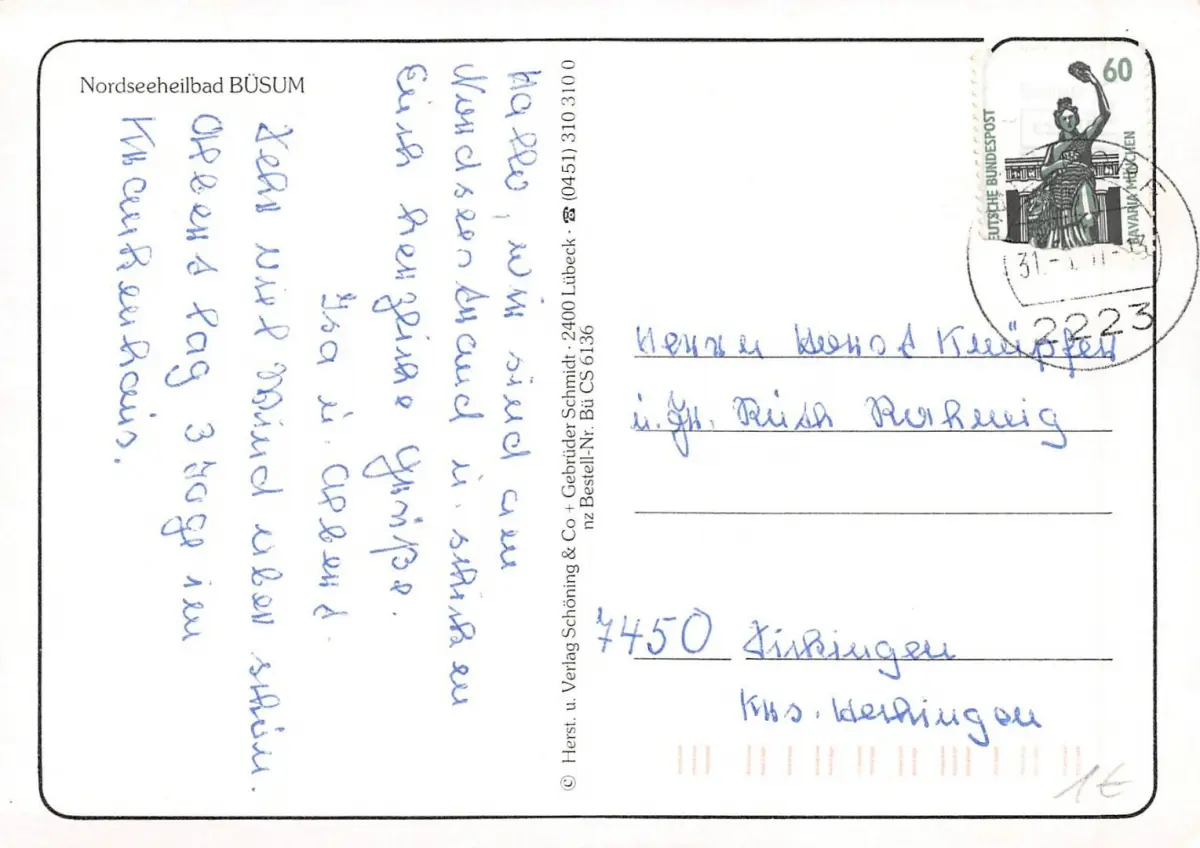 Nordseeheilbad BÜSUM
Hallo, wir sind am
Nordseestrand u. schicken
Euch herzliche Grüße.
Isa u. Albert.
Sehr viel Wind aber schön.
Albert lag 3 Tage im
Krankenhaus.
© Herst. u. Verlag Schöning & Co + Gebrüder Schmidt · 2400 Lübeck · ☎ (0451) 310 310 0
nz Bestell-Nr. Bü CS 6136
60
EUTSCHE BUNDESPOST
BAVARIA MÜNCHEN
2223
Herrn Horst Knüpfer
u. Fr. Ruth
7450 Sickingen
Krs. Hechingen
1€